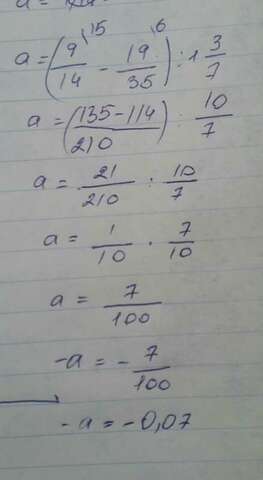 a =
a = (9/14 \15 - 19/35 \6) : 1 3/7
a = (135-114/210) : 10/7
a = 21/210 : 10/7
a = 1/10 · 7/10
a = 7/100
-a = - 7/100
-a = -0,07